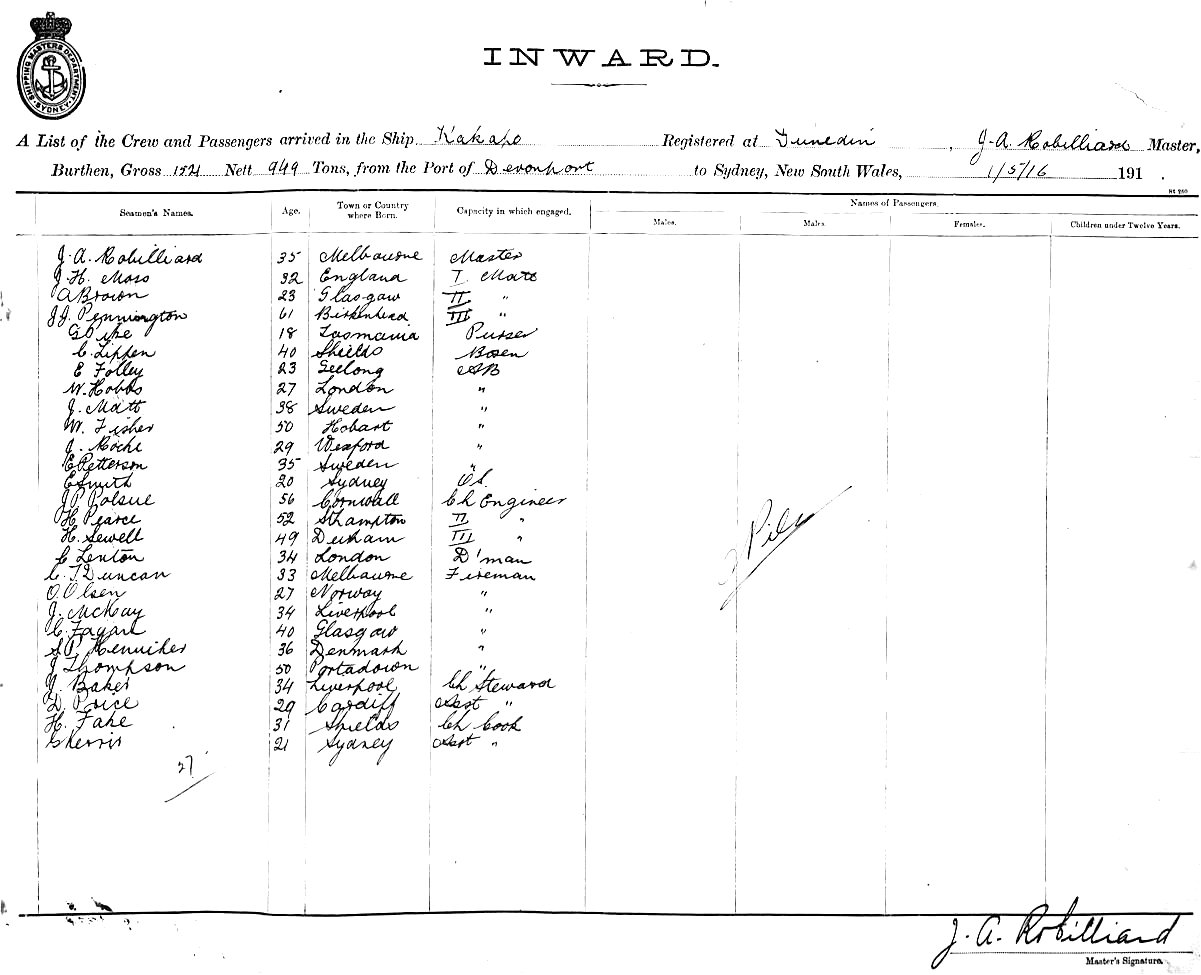 SHIPPING MASTERS DEPARTMENT SYDNEY
INWARD.
A List of the Crew and Passengers arrived in the Ship Kakapo Registered at Dunedin, J. A. Robilliard Master,
Burthen, Gross 1521 Nett 949 Tons, from the Port of Devonport to Sydney, New South Wales, 1/5/16 191 .
St 260
Seamen's Names. Age. Town or Country where Born. Capacity in which engaged. Names of Passengers.
Males. Males. Females. Children under Twelve Years.
J. A. Robilliard 35 Melbourne Master
J. H. Moss 32 England I. Mate
A Brown 23 Glasgow II "
J.J. Pennington 61 Birkenhead III "
G Pike 18 Tasmania Purser
C. Lippen 40 Shields Bosen
E Folley 23 Geelong AB
W. Hobbs 27 London "
J. Matt 38 Sweden "
W. Fisher 50 Hobart "
J. Roche 29 Wexford "
E Petterson 35 Sweden "
E Smith 20 Sydney OS.
J P Polsue 56 Cornwall Ch Engineer
H Pearce 52 Sthampton II "
H. Sewell 49 Durham III "
C Lenton 34 London D'man
C. J Duncan 33 Melbourne Fireman
O. Olsen 27 Norway "
J. McKay 34 Liverpool "
C. Fagan 40 Glasgow "
S P. 36 Denmark "
J Thompson 50 Portadown "
J. Baker 34 Liverpool Ch Steward
D. Price 29 Cardiff Asst "
H. Fahe 31 Shields Ch Cook
21 Sydney Asst "
27
J. A. Robilliard
Master's Signature.